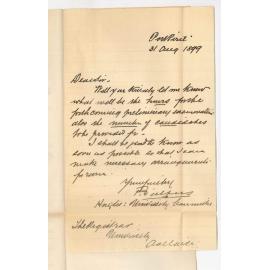 Port Pirie
31 Aug 1899
Dear Sir
Will you kindly let me know
what will be the hours for the
forthcoming preliminary examination
also the number of candidates
to be provided for.
I shall be glad to know as
soon as possible so that I can
make necessary arrangements
for room.
Yours truly
University Committee
The Registrar
University
Adelaide